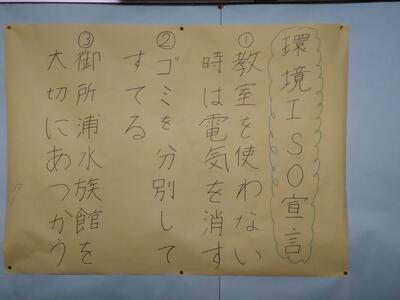 環境ISO宣言
①教室を使わない
時は電気を消す
②ゴミを分別して
すてる
③御所浦水族館を
大切にあつかう